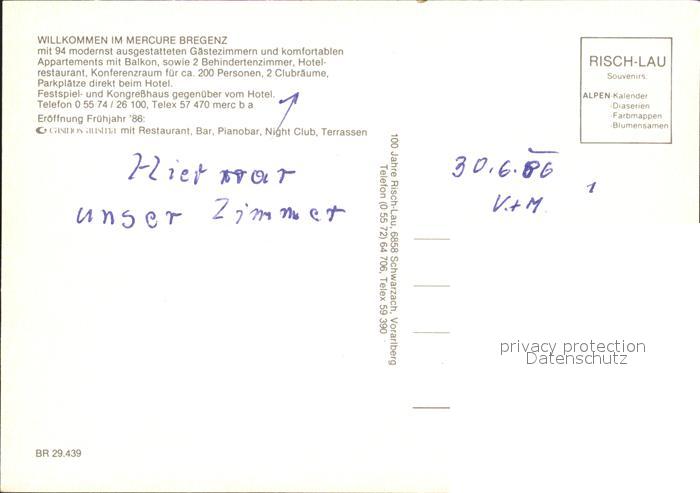 WILLKOMMEN IM MERCURE BREGENZ
mit 94 modernst ausgestatteten Gästezimmern und komfortablen
Appartements mit Balkon, sowie 2 Behindertenzimmer, Hotel-
restaurant, Konferenzraum für ca. 200 Personen, 2 Clubräume,
Parkplätze direkt beim Hotel.
Festspiel- und Kongreßhaus gegenüber vom Hotel.
Telefon 0 55 74 / 26 100, Telex 57 470 merc b a
Eröffnung Frühjahr '86:
casinos austria mit Restaurant, Bar, Pianobar, Night Club, Terrassen
Hier war
unser Zimmer
BR 29.439
100 Jahre Risch-Lau, 6858 Schwarzach, Vorarlberg
Telefon (0 55 72) 64 706, Telex 59 390
RISCH-LAU
Souvenirs:
ALPEN-Kalender
-Diaserien
-Farbmappen
-Blumensamen
30.6.86
V.+M.
privacy protection
Datenschutz